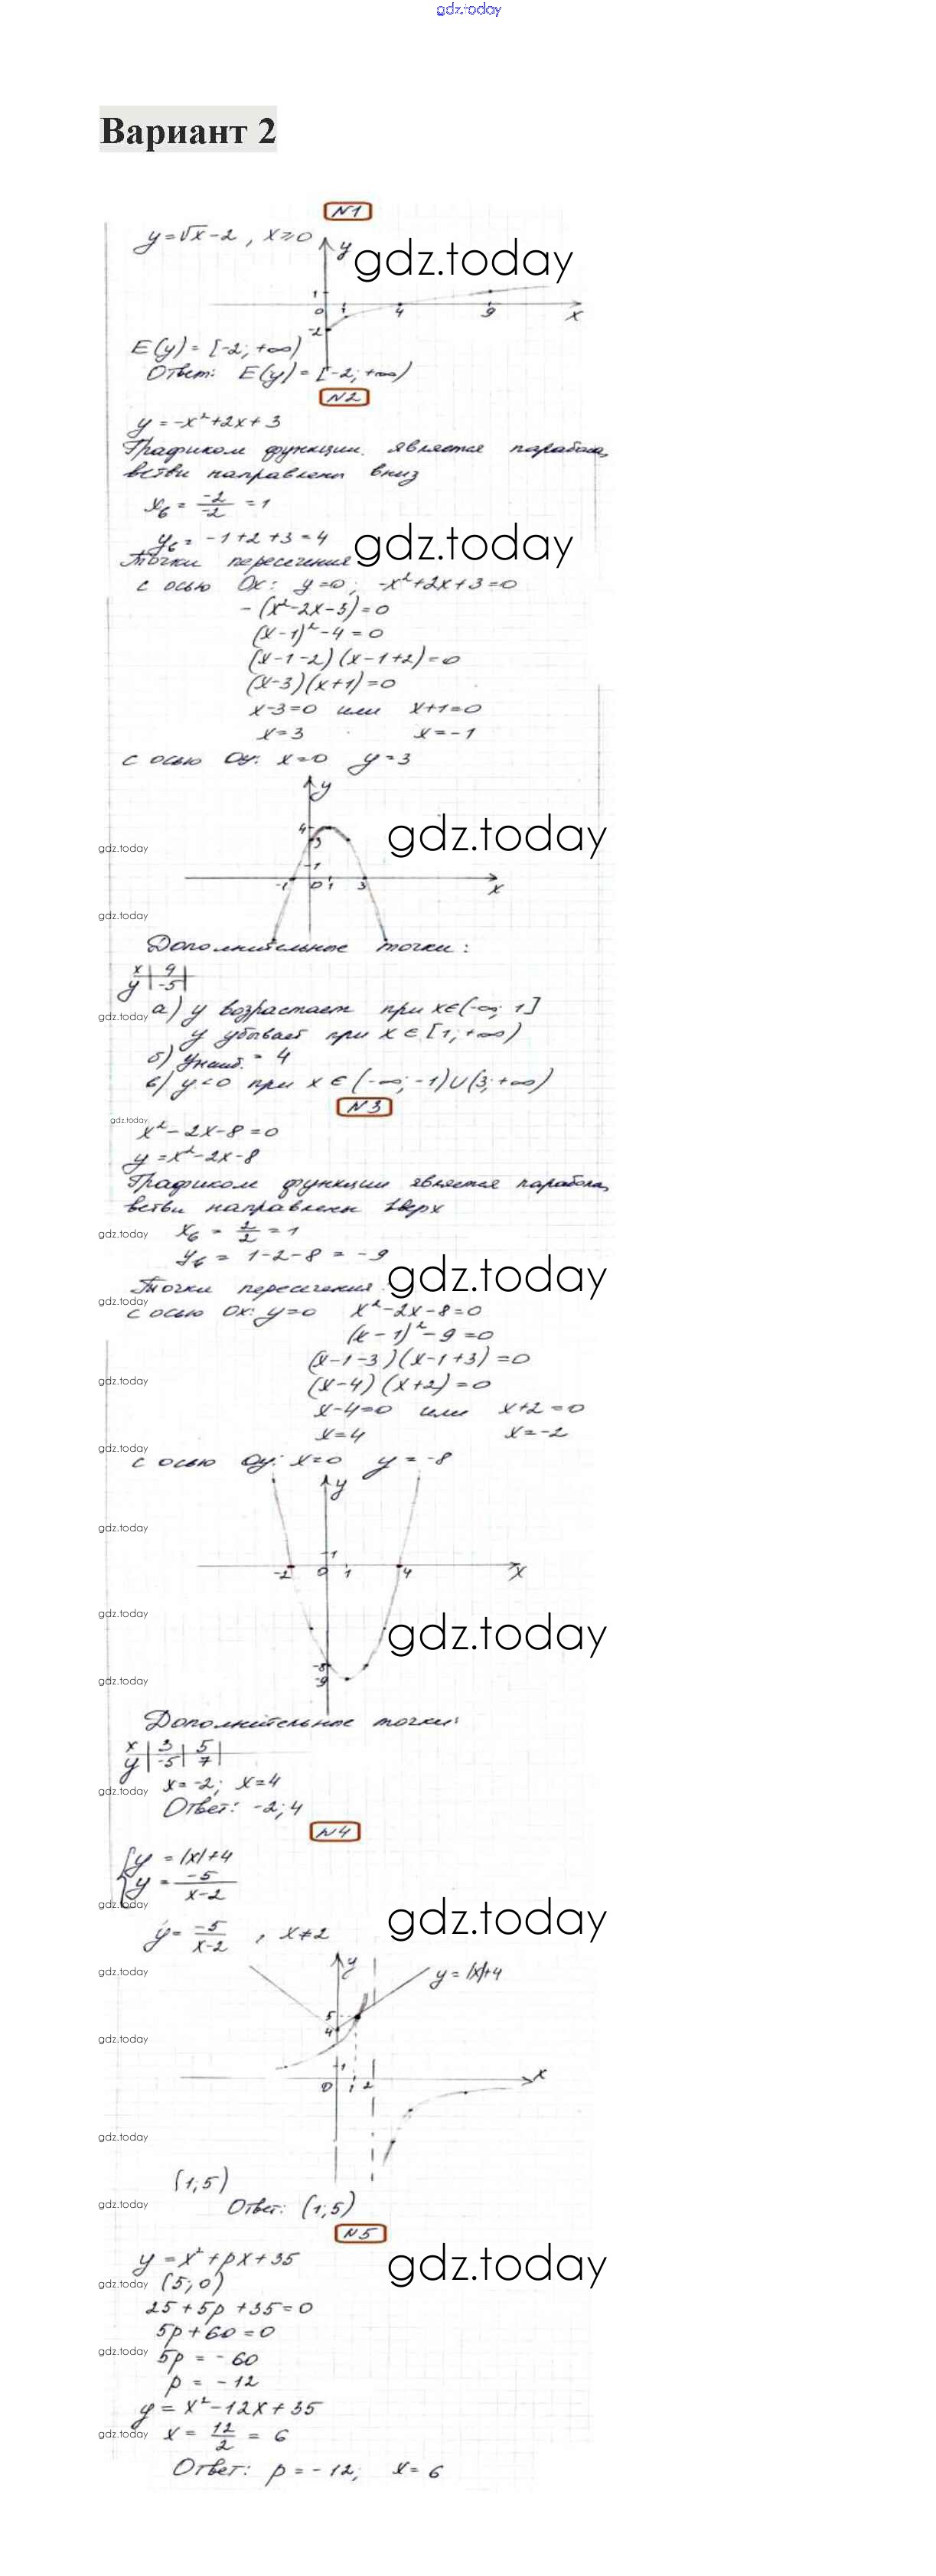 gdz.today
Вариант 2
N1
y = √x - 2 , x ⩾ 0
gdz.today
y
1
0 1 4 9 x
-2
E(y) = [-2; +∞)
Ответ: E(y) = [-2; +∞)
N2
y = -x² + 2x + 3
Графиком функции является парабола,
ветви направлены вниз
x₆ = -2/-2 = 1
y₆ = -1 + 2 + 3 = 4
gdz.today
Точки пересечения
с осью Ox: y = 0; -x² + 2x + 3 = 0
-(x² - 2x - 3) = 0
(x - 1)² - 4 = 0
(x - 1 - 2)(x - 1 + 2) = 0
(x - 3)(x + 1) = 0
x - 3 = 0 или x + 1 = 0
x = 3 x = -1
с осью Oy: x = 0 y = 3
y
4
3
gdz.today
gdz.today
1
-1 0 1 3 x
gdz.today
Дополнительные точки:
x | 9 |
y | -5 |
gdz.today
а) y возрастает при x ∈ (-∞; 1]
y убывает при x ∈ [1; +∞)
б) yнаиб. = 4
в) y < 0 при x ∈ (-∞; -1) ∪ (3; +∞)
N3
gdz.today
x² - 2x - 8 = 0
y = x² - 2x - 8
Графиком функции является парабола,
ветви направлены вверх
gdz.today
x₆ = 2/2 = 1
y₆ = 1 - 2 - 8 = -9
gdz.today
Точки пересечения
gdz.today
с осью Ox: y = 0 x² - 2x - 8 = 0
(x - 1)² - 9 = 0
(x - 1 - 3)(x - 1 + 3) = 0
gdz.today
(x - 4)(x + 2) = 0
x - 4 = 0 или x + 2 = 0
x = 4 x = -2
gdz.today
с осью Oy: x = 0 y = -8
y
gdz.today
1
-2 0 1 4 x
gdz.today
gdz.today
-8
-9
gdz.today
Дополнительные точки:
x | 3 | 5 |
y | -5 | 7 |
gdz.today
x = -2; x = 4
Ответ: -2; 4
N4
y = |x| + 4
y = -5/x-2
gdz.today
gdz.today
y = -5/x-2 , x ≠ 2
y
gdz.today
y = |x| + 4
5
4
gdz.today
1
0 1 2 x
gdz.today
(1; 5)
gdz.today
Ответ: (1; 5)
N5
y = x² + px + 35
gdz.today
gdz.today
(5; 0)
25 + 5p + 35 = 0
5p + 60 = 0
gdz.today
5p = -60
p = -12
y = x² - 12x + 35
gdz.today
x = 12/2 = 6
Ответ: p = -12; x = 6